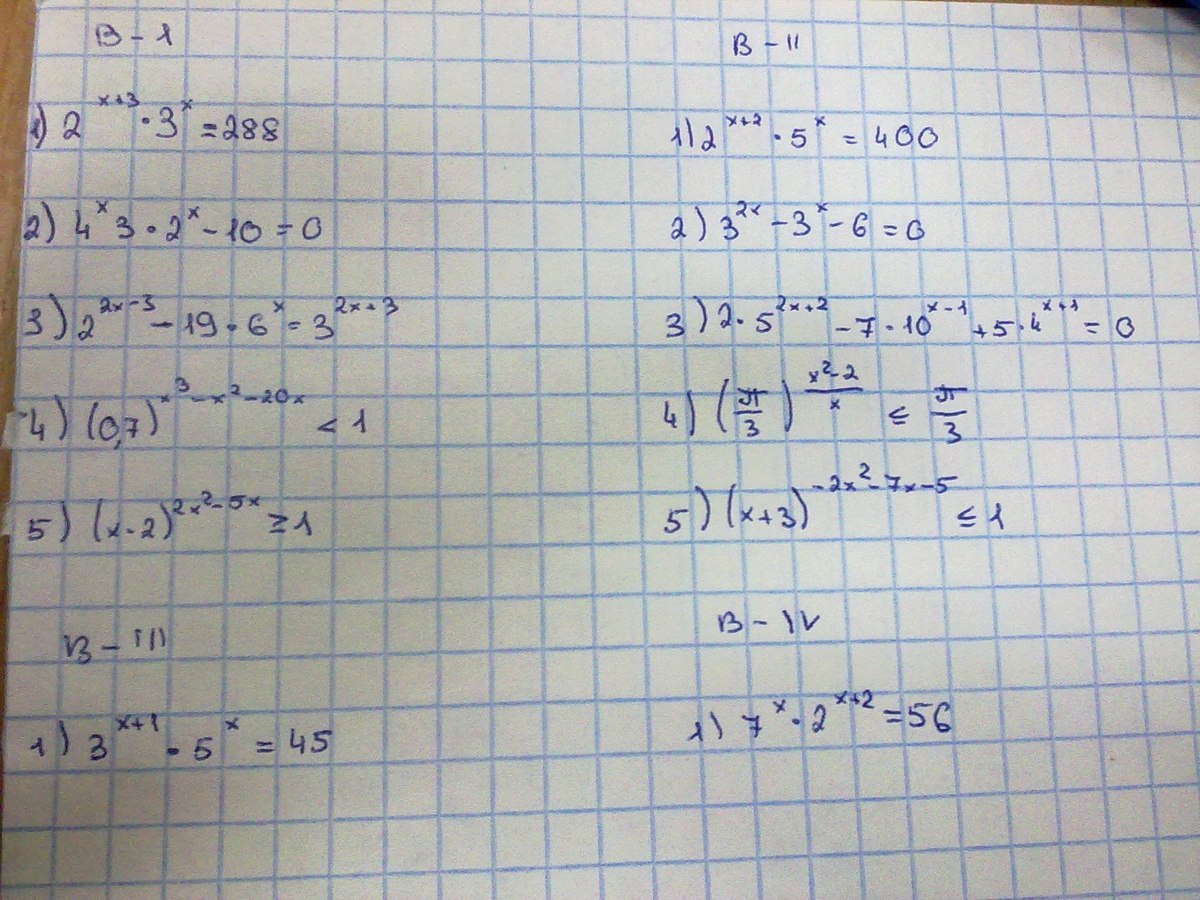 В - I
1) 2^{x+3} · 3^x = 288
2) 4^x 3 · 2^x - 10 = 0
3) 2^{2x-3} - 19 · 6^x = 3^{2x+3}
4) (0,7)^{x^3 - x^2 - 20x} < 1
5) (x - 2)^{2x^2 - 5x} ≥ 1
В - II
1) 2^{x+2} · 5^x = 400
2) 3^{2x} - 3^x - 6 = 0
3) 2 · 5^{2x+2} - 7 · 10^{x-1} + 5 · 4^{x+1} = 0
4) (π/3)^{(x^2 - 2)/x} ≤ π/3
5) (x+3)^{-2x^2 - 7x - 5} ≤ 1
В - III
1) 3^{x+1} · 5^x = 45
В - IV
1) 7^x · 2^{x+2} = 56